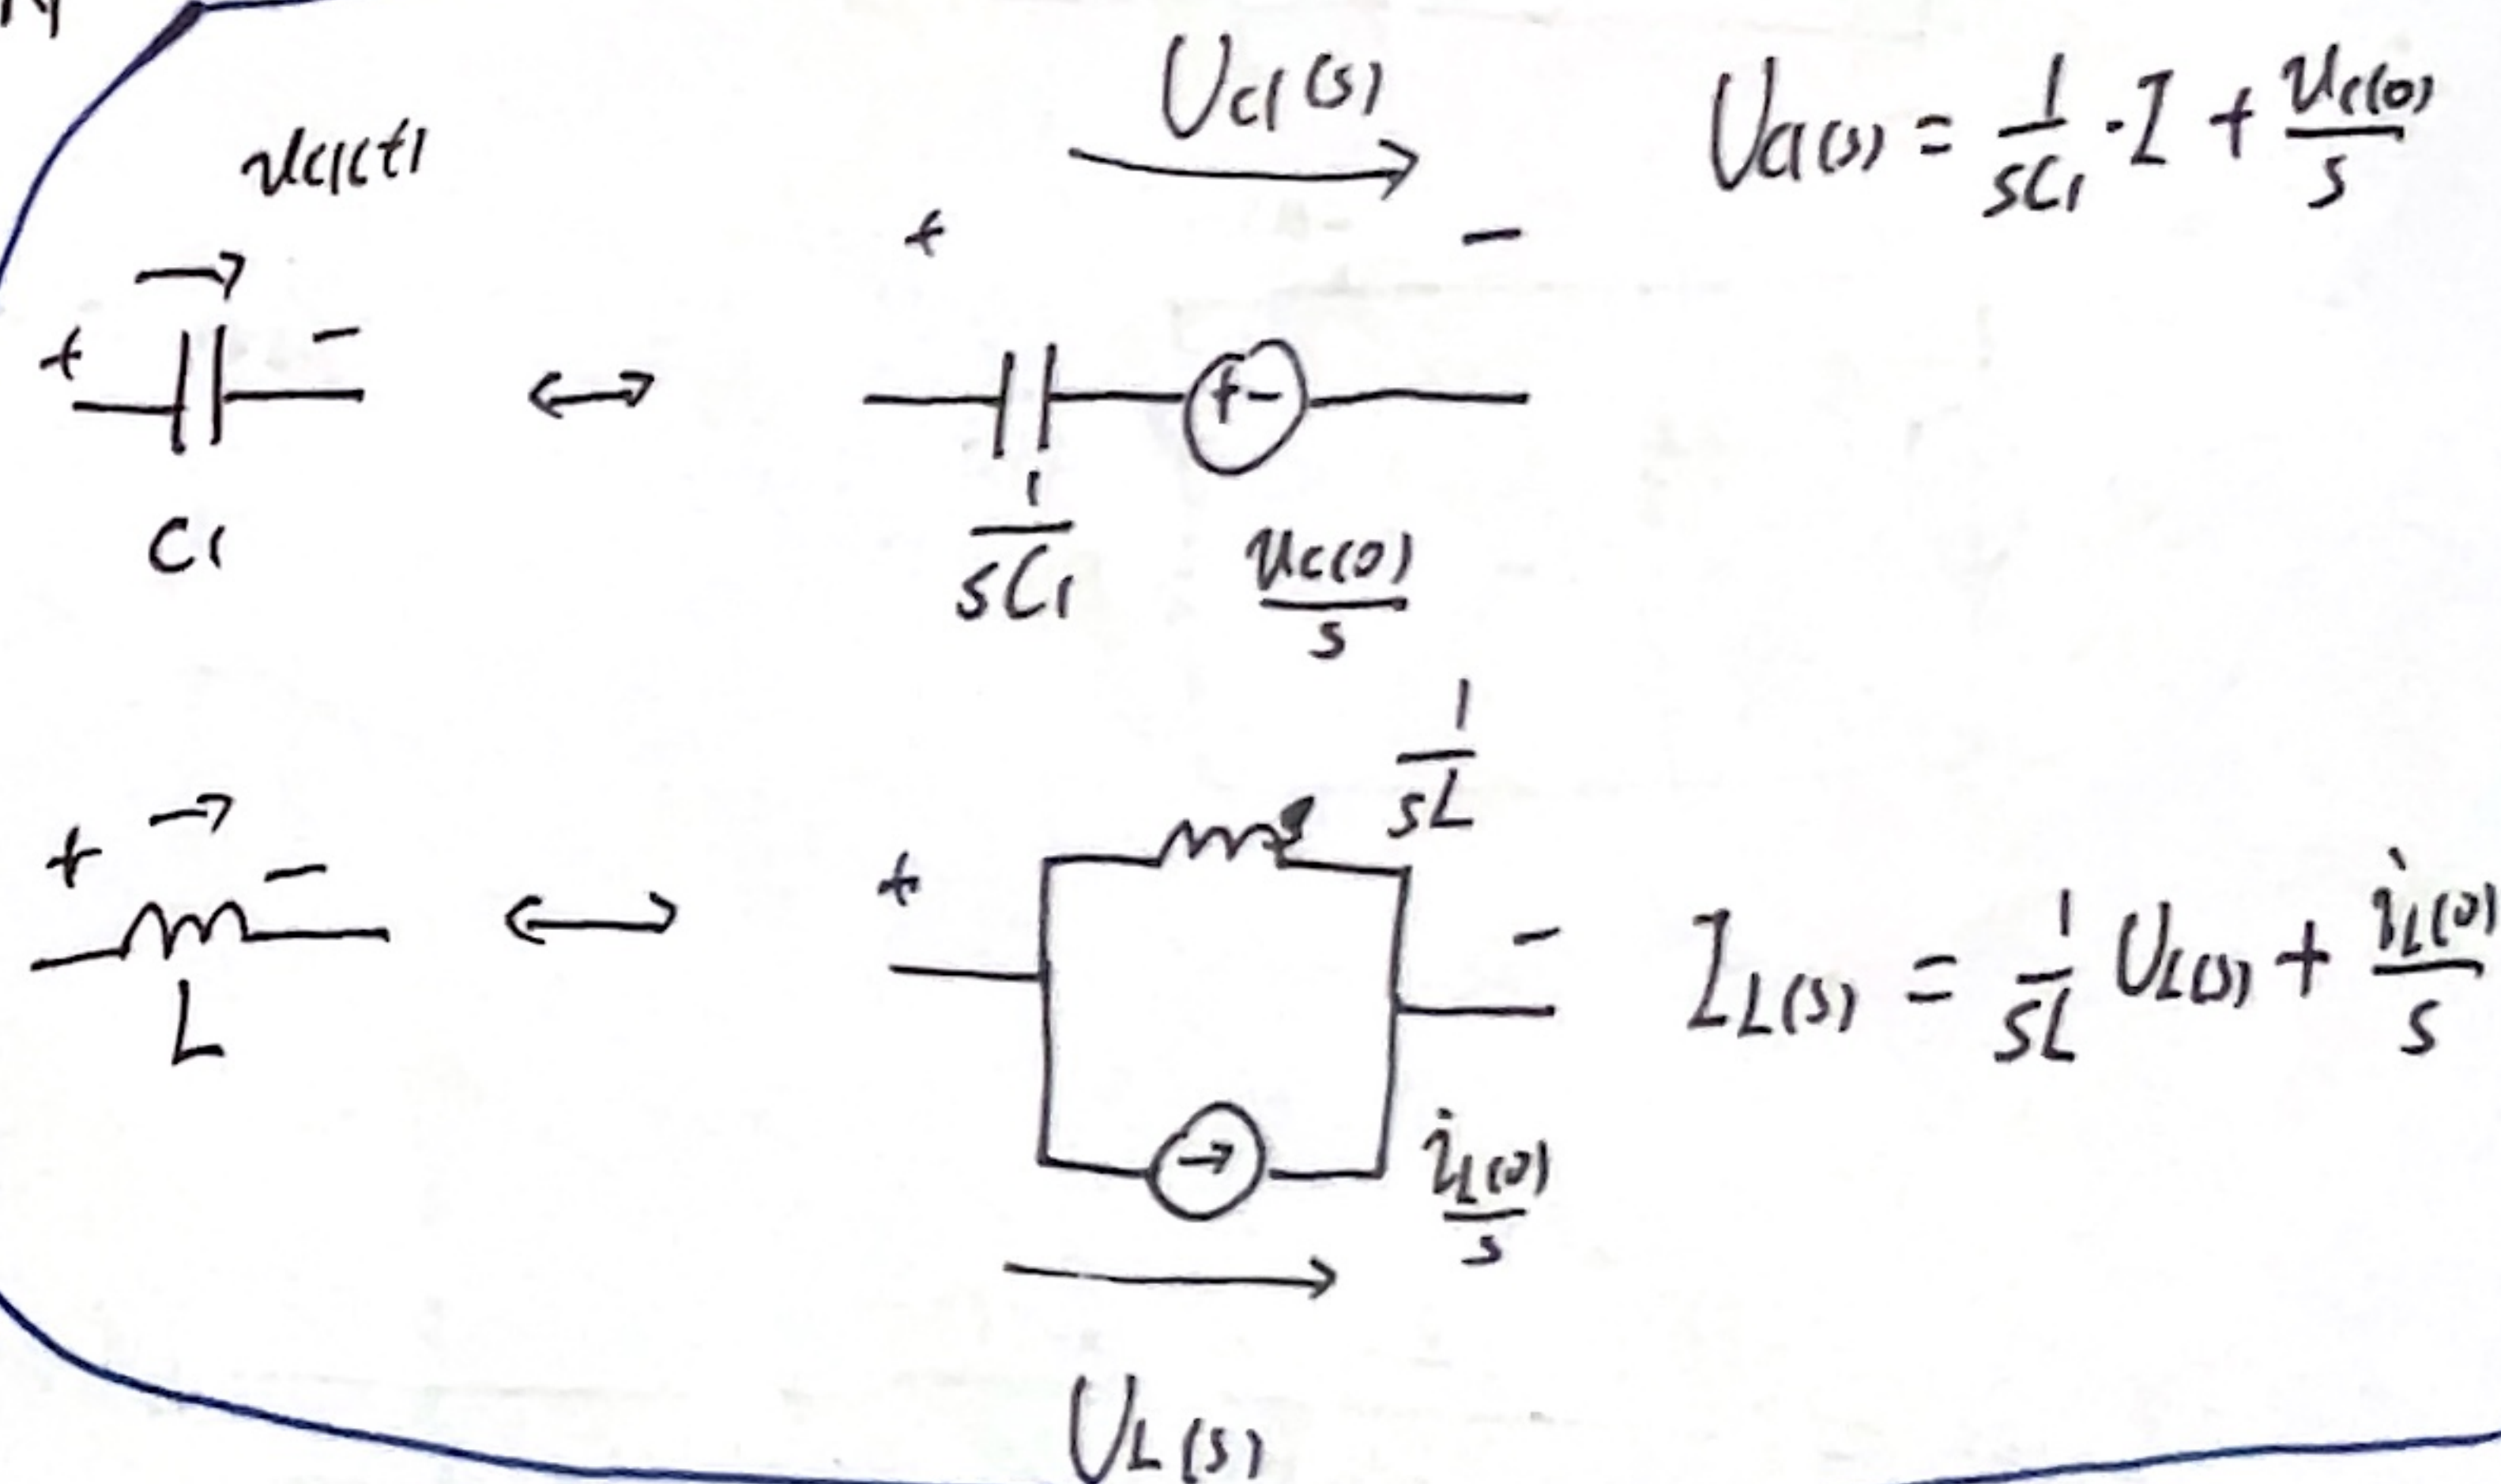 U_{C1}(s)
U_{C1}(s) = \frac{1}{sC_1} \cdot I + \frac{u_C(0)}{s}
u_{C1}(t)
→
+ −
+ −
↔
+ −
C1
\frac{1}{sC_1}
\frac{u_C(0)}{s}
\frac{1}{sL}
→
+ −
+ −
↔
L
I_L(s) = \frac{1}{sL} U_L(s) + \frac{i_L(0)}{s}
→
\frac{i_L(0)}{s}
→
U_L(s)